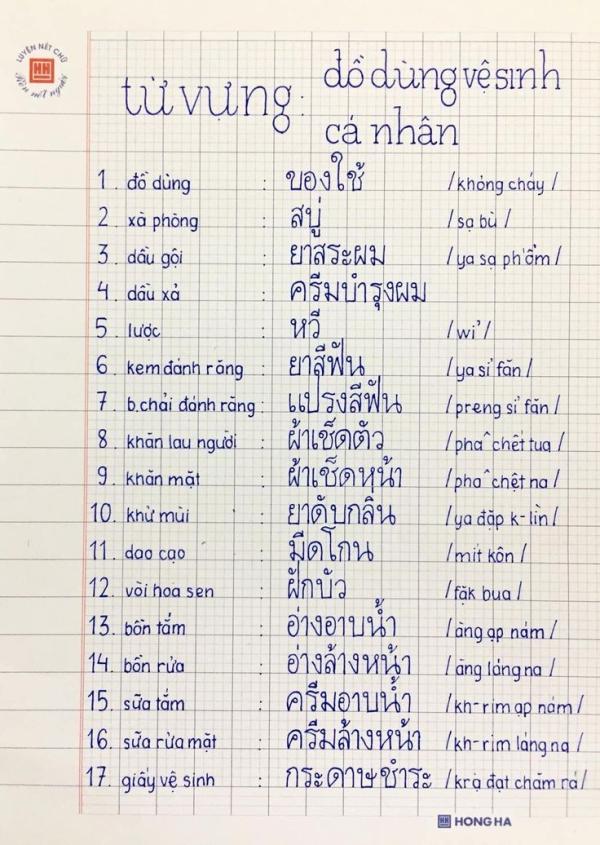 LUYỆN NÉT CHỮ
HH
Rèn nết người
từ vựng: đồ dùng vệ sinh
cá nhân
1. đồ dùng : ของใช้ /khỏng cháy/
2. xà phòng : สบู่ /sạ bù/
3. dầu gội : ยาสระผม /ya sạ phổm/
4. dầu xả : ครีมบำรุงผม
5. lược : หวี /wỉ/
6. kem đánh răng : ยาสีฟัน /ya sỉ făn/
7. b.chải đánh răng : แปรงสีฟัน /preng sỉ făn/
8. khăn lau người : ผ้าเช็ดตัว /phaˆ chết tua/
9. khăn mặt : ผ้าเช็ดหน้า /phaˆ chệt na/
10. khử mùi : ยาดับกลิ่น /ya đặp k-lìn/
11. dao cạo : มีดโกน /mít kôn/
12. vòi hoa sen : ฝักบัว /fặk bua/
13. bồn tắm : อ่างอาบน้ำ /àng ạp nám/
14. bồn rửa : อ่างล้างหน้า /àng láng na/
15. sữa tắm : ครีมอาบน้ำ /kh-rim ạp nám/
16. sữa rửa mặt : ครีมล้างหน้า /kh-rim láng nạ/
17. giấy vệ sinh : กระดาษชำระ /krạ đạt chăm rá/
HH HONG HA